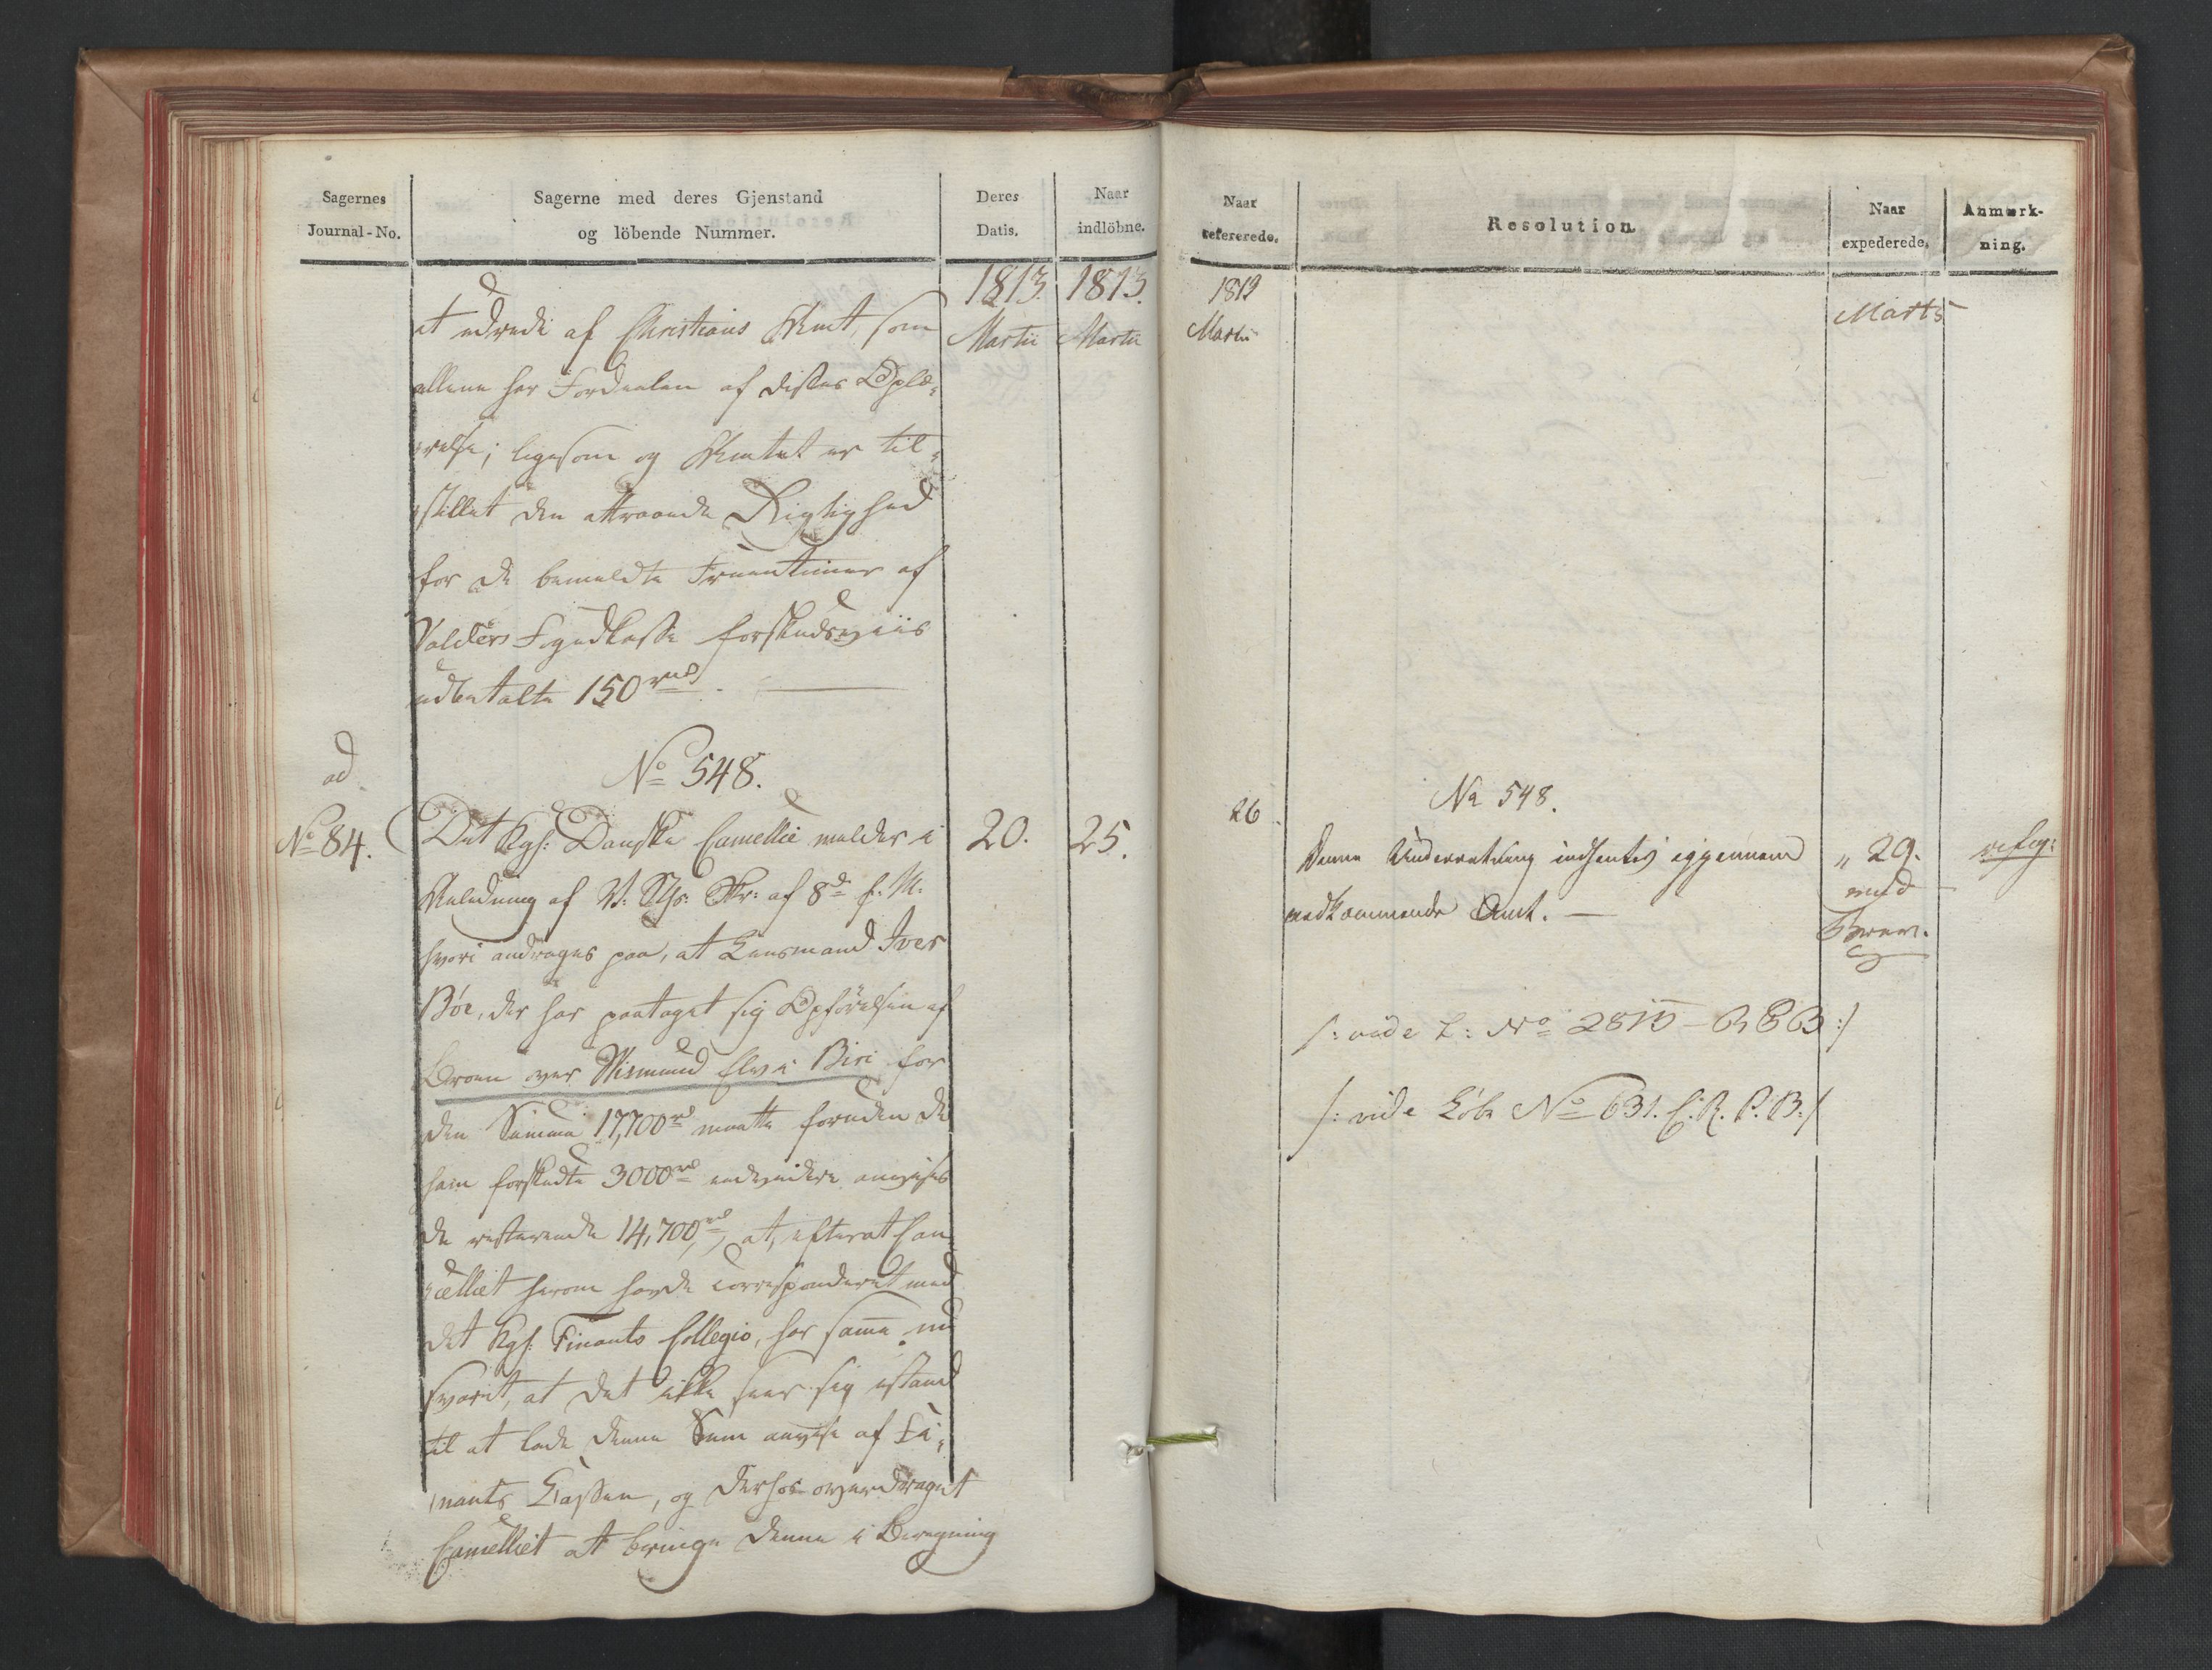 Sagernes
Journal-No.
Sagerne med deres Gjenstand
og löbende Nummer.
Deres
Datis.
Naar
indlöbne.
1813. 1813.
Martii Martii
at udrede af Christians Amt, som
allene har Fordeelen af disses Oplæ-
relse; ligesom og Amtet er til-
stillet den attraaede Rigtighed
for de bemeldte Fruentimer af
Valders Fogedkasse forskudsviis
udbetalte 150 rd.
ad
No 84.
No 548.
Det Kgl: Danske Cancellie melder i
Anledning af V: Skr: af 8de f. M.
hvori andrages paa, at Lensmand Iver
Böe, der har paataget sig Opförelsen af
Broen over Wismund Elv i Biri for
den Summa 17,700 rd maatte foruden de
ham forskudte 3000 rd endvidere anvises
de resterende 14,700 rd, at, efterat Can-
celliet herom havde correspondert med
det Kgl: Finants Collegio, har samme nu
svaret, at det ikke seer sig istand
til at lade denne Sum anvise af Fi-
nants Cassen, og derhos overdraget
Cancelliet at bringe denne i Beregning
20.
25.
Naar
refererede.
Resolution.
Naar
expederede.
Anmærk-
ning.
1813
Martii
Marts
26.
No 548.
Denne Underretning indhentes igjennem
vedkommende Amt.
" 29.
med
/: vide L: No 2810
/: vide Löbe No 631. C. R. P. B:/